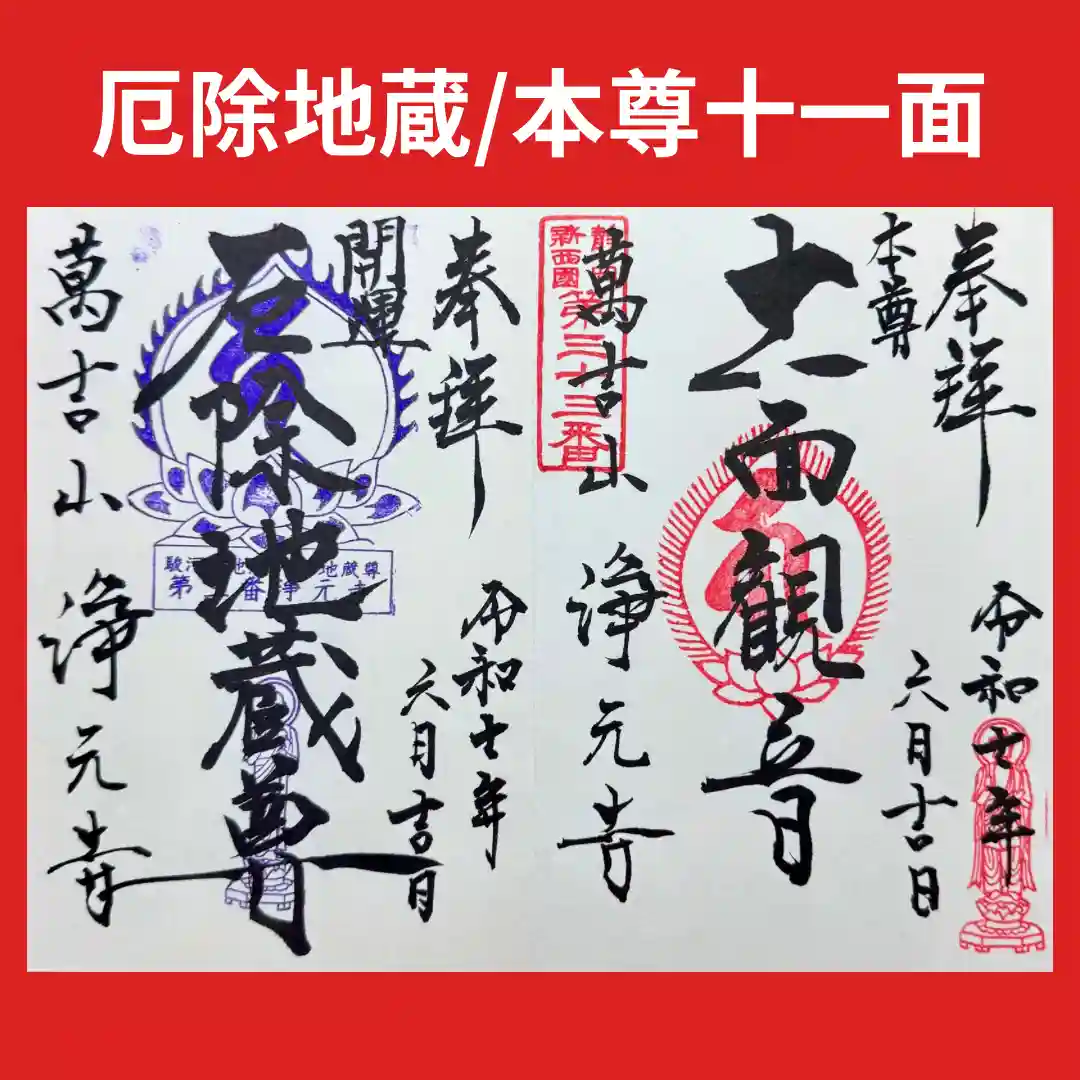 厄除地蔵/本尊十一面
奉拝
本尊
十一面観音
萬吉山 浄元寺
令和七年
六月吉日
新西國
第三十三番
奉拝
開運
厄除地蔵尊
萬吉山 浄元寺
令和七年
六月吉日
地蔵尊